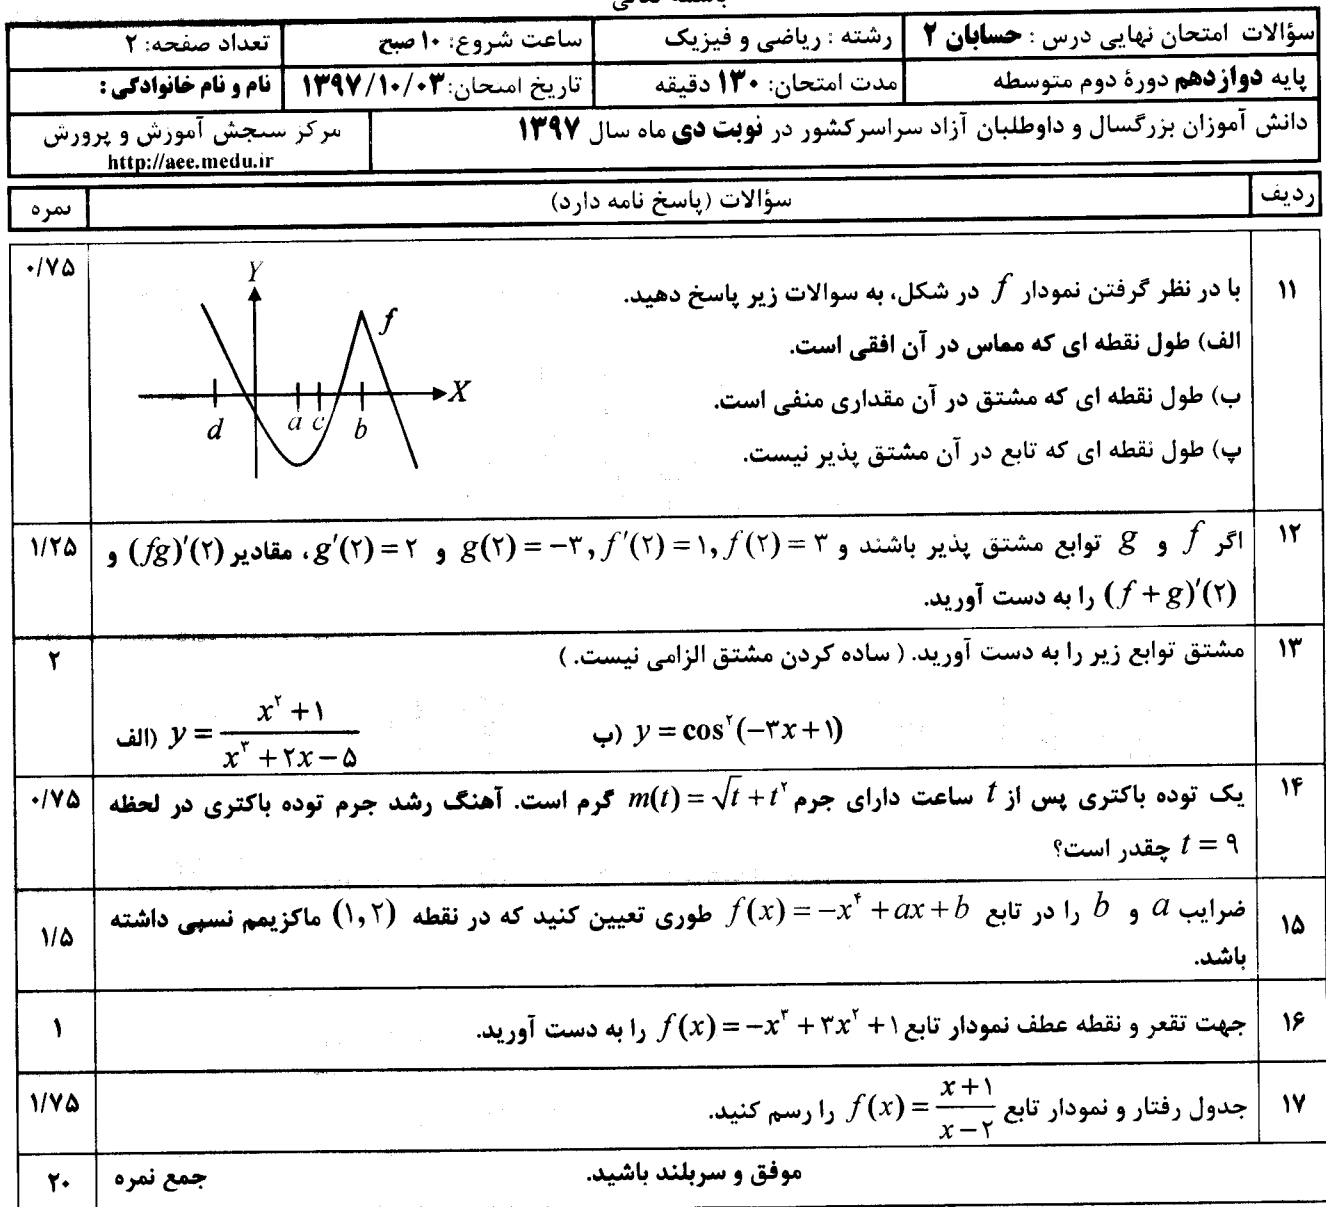 باسمه تعالی
سؤالات امتحان نهایی درس : حسابان ۲ رشته : ریاضی و فیزیک ساعت شروع: ۱۰ صبح تعداد صفحه: ۲
پایه دوازدهم دورهٔ دوم متوسطه مدت امتحان: ۱۳۰ دقیقه تاریخ امتحان: ۱۳۹۷/۱۰/۰۳ نام و نام خانوادگی :
دانش آموزان بزرگسال و داوطلبان آزاد سراسرکشور در نوبت دی ماه سال ۱۳۹۷ مرکز سنجش آموزش و پرورش
http://aee.medu.ir
ردیف سؤالات (پاسخ نامه دارد) نمره
۱۱ با در نظر گرفتن نمودار f در شکل، به سوالات زیر پاسخ دهید. ۰/۷۵
الف) طول نقطه ای که مماس در آن افقی است.
ب) طول نقطه ای که مشتق در آن مقداری منفی است.
پ) طول نقطه ای که تابع در آن مشتق پذیر نیست.
Y
f
X
d a c b
۱۲ اگر f و g توابع مشتق پذیر باشند و f(۲) = ۳ , f′(۲) = ۱ , g(۲) = −۳ و g′(۲) = ۲ ، مقادیر (fg)′(۲) و ۱/۲۵
(f + g)′(۲) را به دست آورید.
۱۳ مشتق توابع زیر را به دست آورید. ( ساده کردن مشتق الزامی نیست. ) ۲
الف) y = (x² + ۱)/(x³ + ۲x − ۵) ب) y = cos²(−۳x + ۱)
۱۴ یک توده باکتری پس از t ساعت دارای جرم m(t) = √t + t² گرم است. آهنگ رشد جرم توده باکتری در لحظه ۰/۷۵
t = ۹ چقدر است؟
۱۵ ضرایب a و b را در تابع f(x) = −x⁴ + ax + b طوری تعیین کنید که در نقطه (۱,۲) ماکزیمم نسبی داشته ۱/۵
باشد.
۱۶ جهت تقعر و نقطه عطف نمودار تابع f(x) = −x³ + ۳x² + ۱ را به دست آورید. ۱
۱۷ جدول رفتار و نمودار تابع f(x) = (x + ۱)/(x − ۲) را رسم کنید. ۱/۷۵
موفق و سربلند باشید. جمع نمره ۲۰